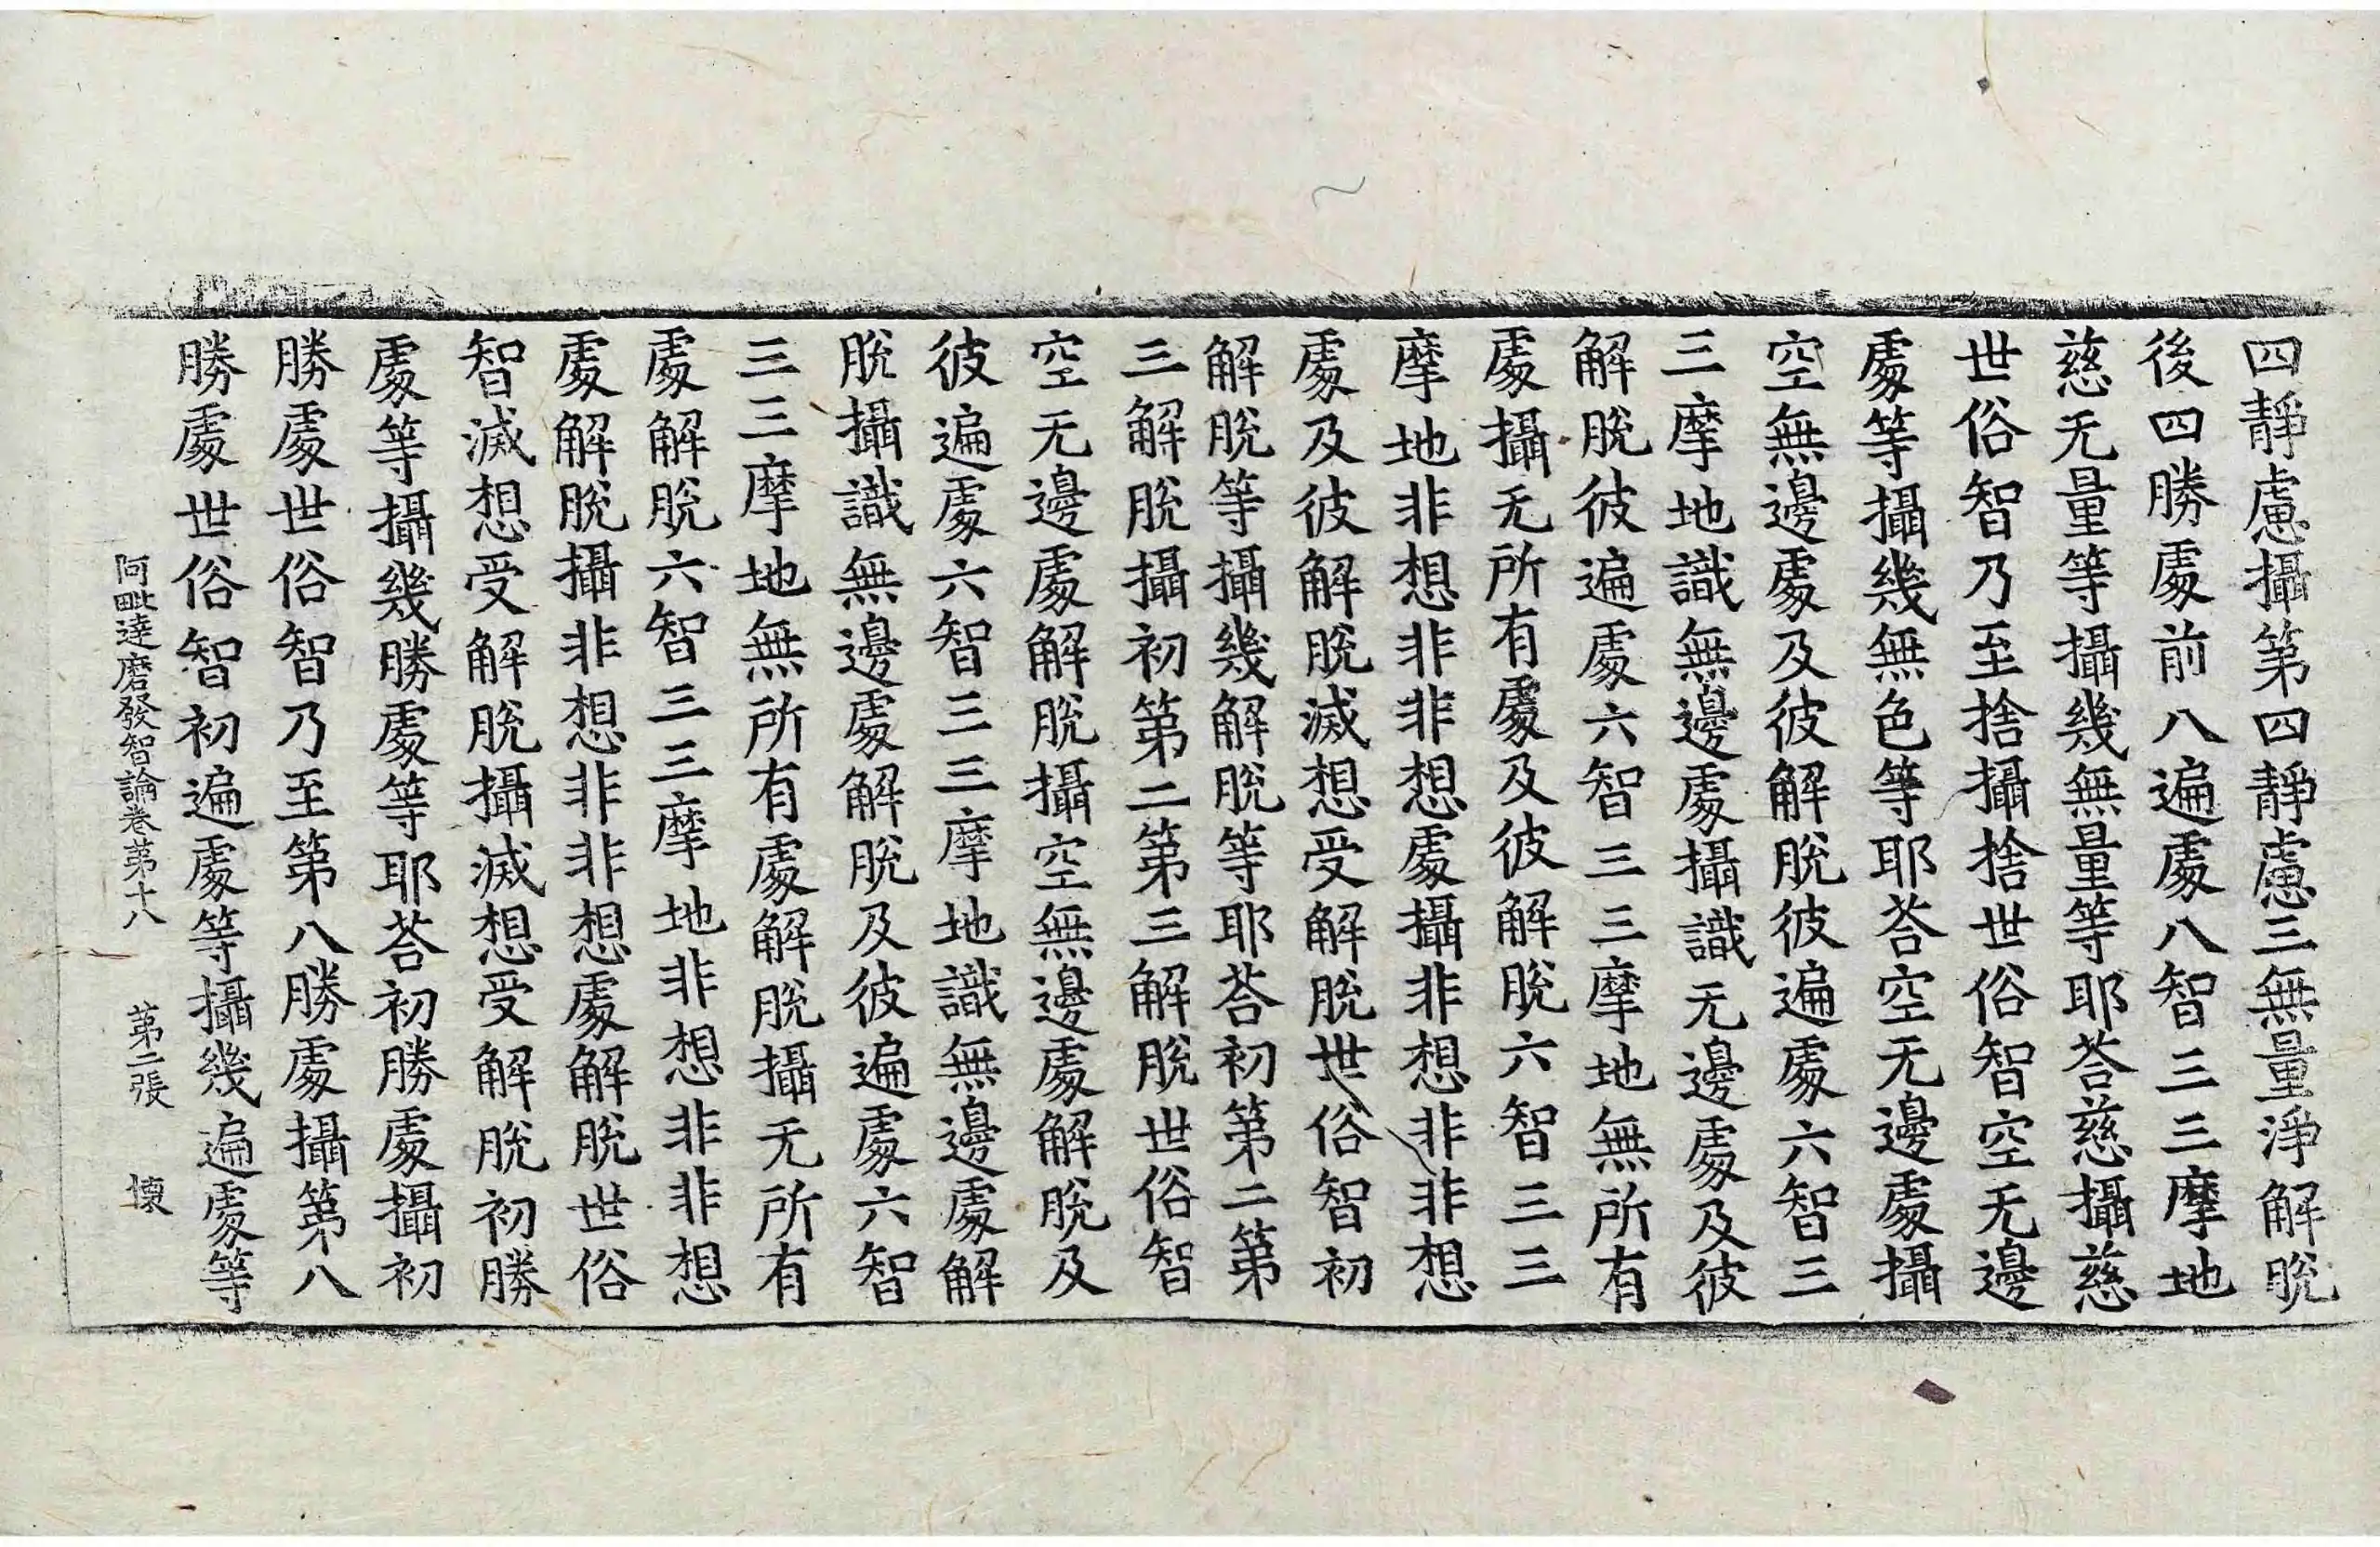 四靜慮攝第四靜慮三無量淨解脫
後四勝處前八遍處八智三三摩地
慈无量等攝幾無量等耶荅慈攝慈
世俗智乃至捨攝捨世俗智空无邊
處等攝幾無色等耶荅空无邊處攝
空無邊處及彼解脫彼遍處六智三
三摩地識無邊處攝識无邊處及彼
解脫彼遍處六智三三摩地無所有
處攝无所有處及彼解脫六智三三
摩地非想非非想處攝非想非非想
處及彼解脫滅想受解脫世俗智初
解脫等攝幾解脫等耶荅初第二第
三解脫攝初第二第三解脫世俗智
空无邊處解脫攝空無邊處解脫及
彼遍處六智三三摩地識無邊處解
脫攝識無邊處解脫及彼遍處六智
三三摩地無所有處解脫攝无所有
處解脫六智三三摩地非想非非想
處解脫攝非想非非想處解脫世俗
智滅想受解脫攝滅想受解脫初勝
處等攝幾勝處等耶荅初勝處攝初
勝處世俗智乃至第八勝處攝第八
勝處世俗智初遍處等攝幾遍處等
阿毗達磨發智論卷第十八 第二張 懐